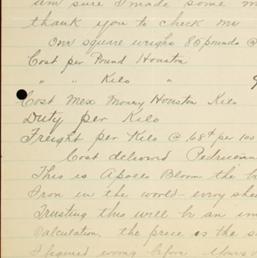 am sure I made some m
thank you to check me
One square weighs 80 pounds @
Cost per Pound Houston
" " Kilo "
Cost Mex Money Houston Kilo
Duty per Kilo
Freight per Kilo @ 68¢ per 100
Cost delivered
This is Apollo Bloom the b
Iron in the world every she
Trusting this will be an
Calculation, the price as the s
I figured wrong before